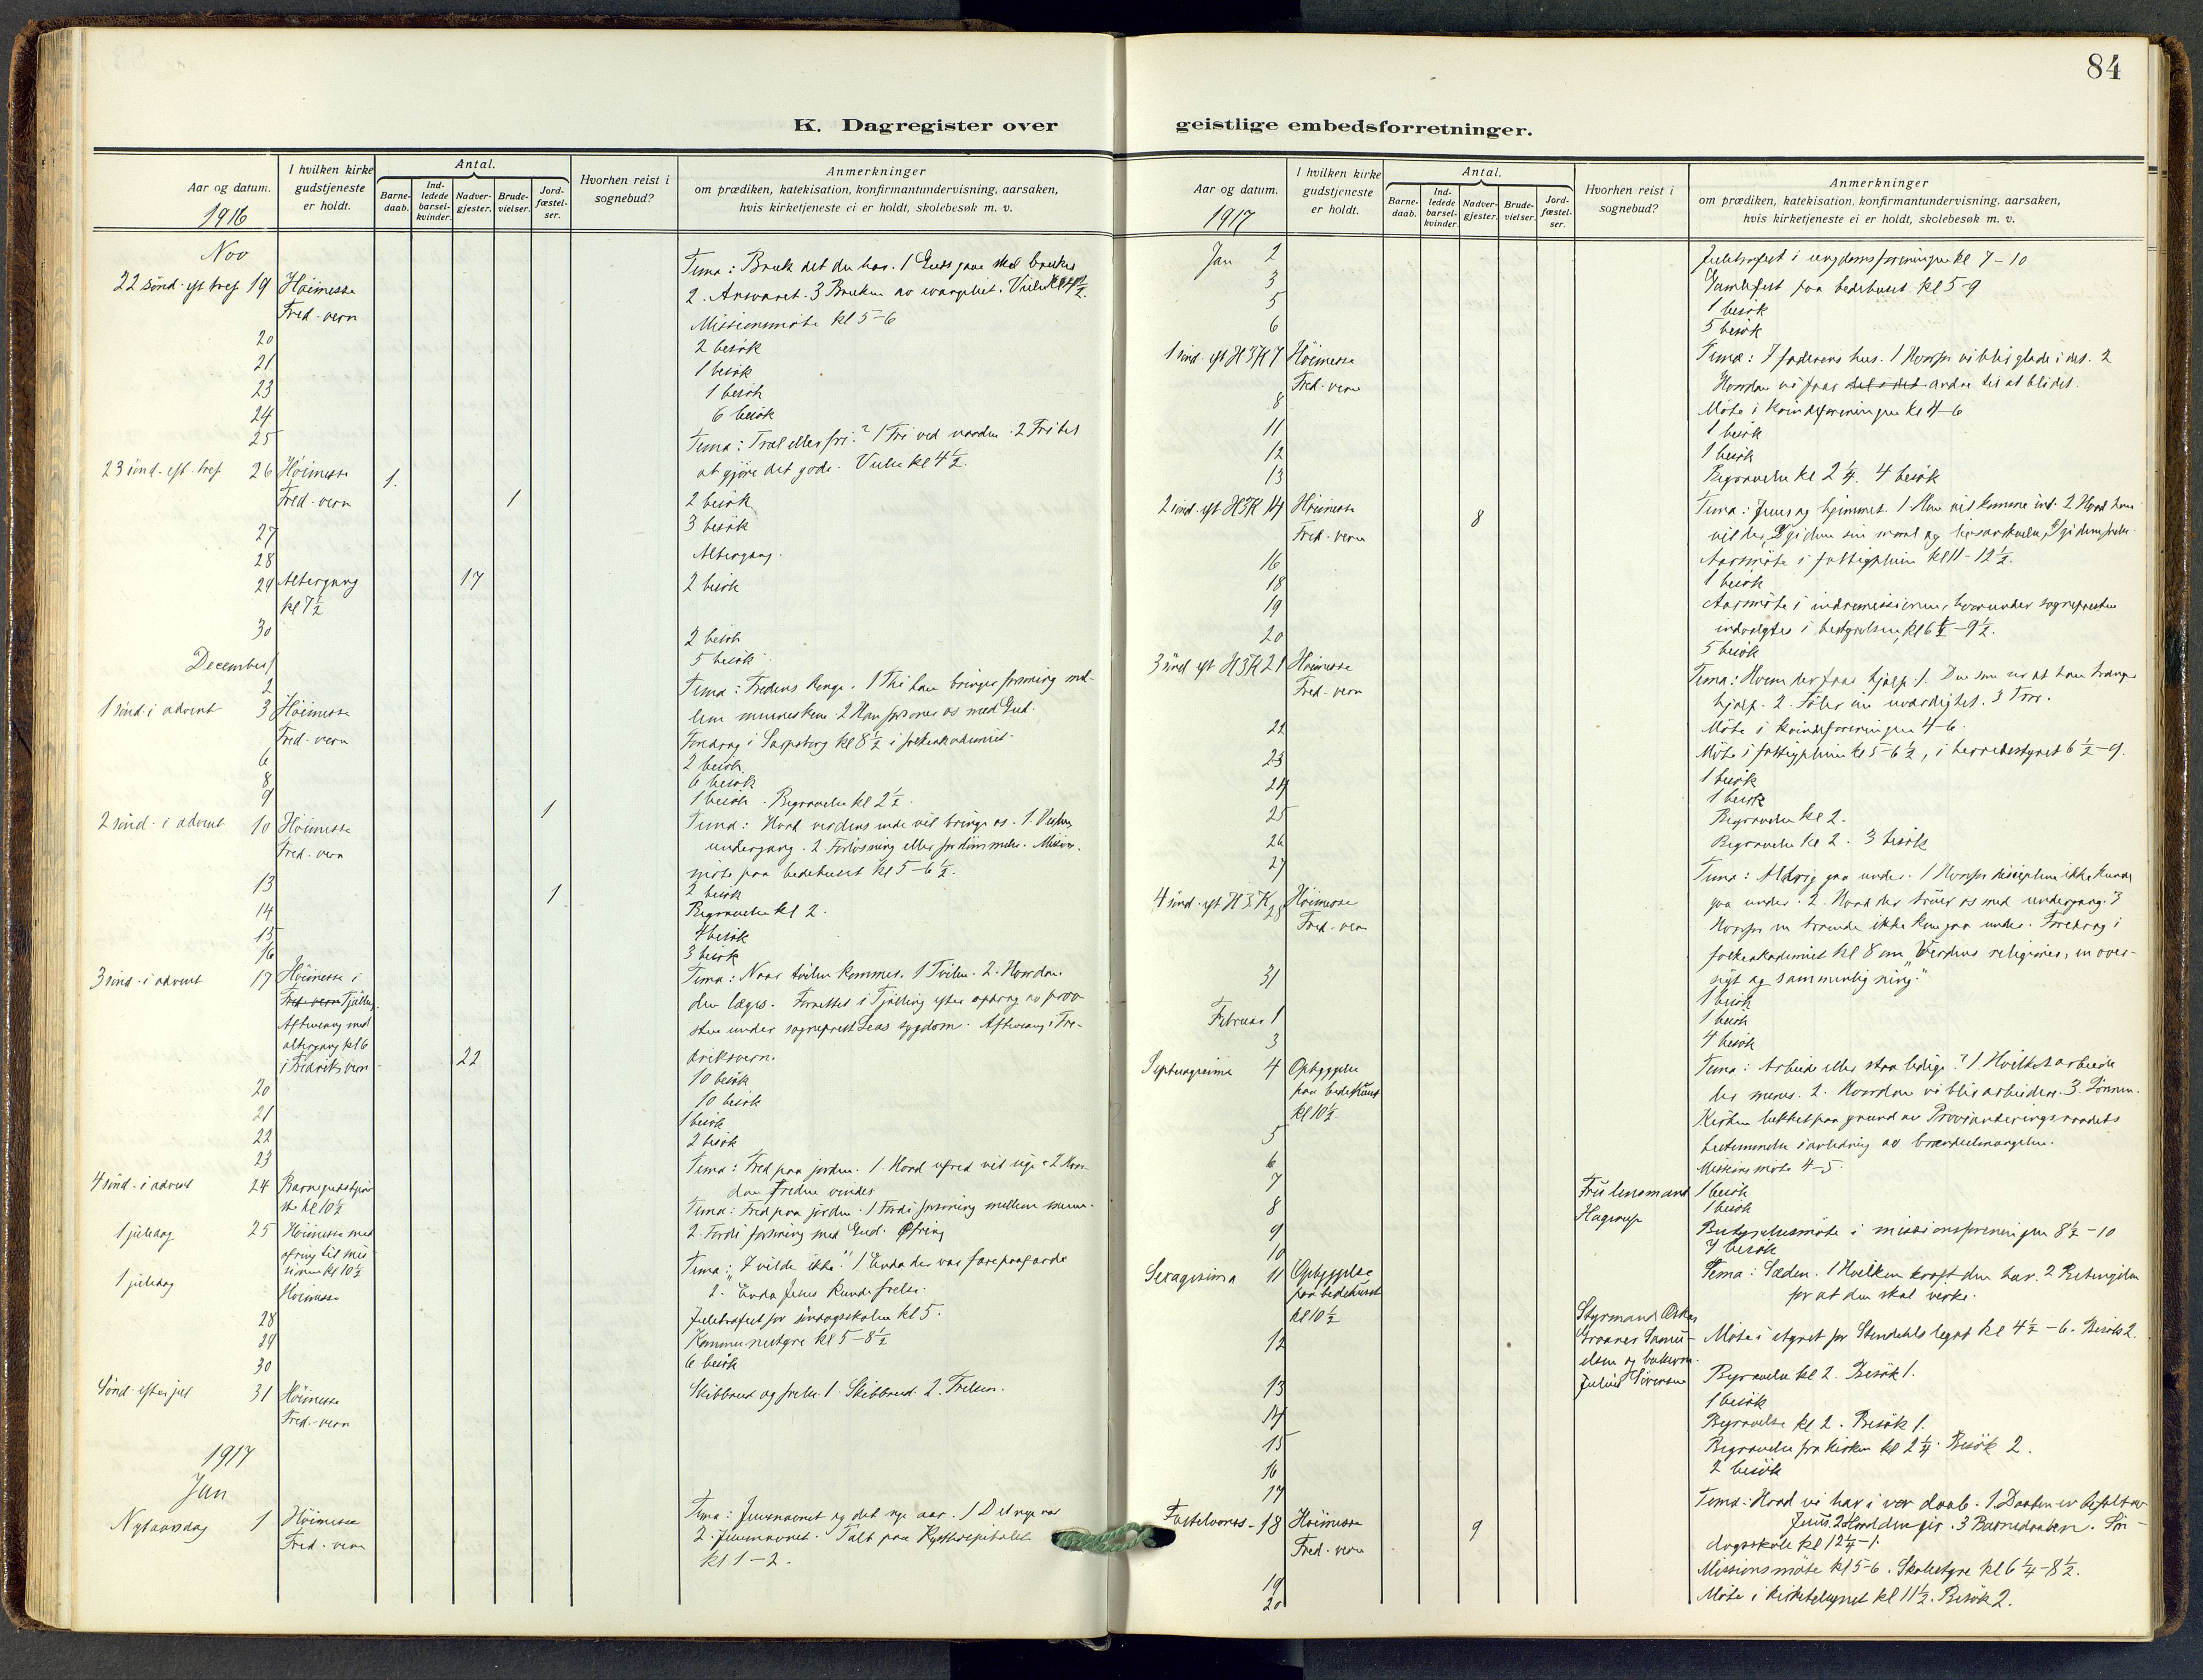 84
K. Dagregister over
geistlige embedsforretninger.
Aar og datum.
1916
I hvilken kirke
gudstjeneste
er holdt.
Antal.
Barne-
daab.
Ind-
ledede
barsel-
kvinder.
Nadver-
gjester.
Brude-
vielser.
Jord-
fæstel-
ser.
Hvorhen reist i
sognebud?
Anmerkninger
om prædiken, katekisation, konfirmantundervisning, aarsaken,
hvis kirketjeneste ei er holdt, skolebesøk m. v.
Nov
22 sönd. eft tref 19 Höimesse
Fred.vern
Tema: Bruk det du har. 1 Guds gave skal brukes
2. Ansvaret. 3 Bruken av evangeliet. Vielse kl 4½.
Missionsmöte kl 5-6
20 2 besök
21 1 besök
23 1 besök
24 6 besök
25
23 sönd. eft. tref 26 Höimesse 1.
Fred.vern 1
Tema: Træl eller fri? 1 Fri ved naaden. 2 Fri til
at gjöre det gode. Vielse kl 4½.
27 2 besök
28 3 besök
29 Altergang 17 Altergang.
kl 7½
30 2 besök
December 1 2 besök
2 5 besök
1 sönd. i advent 3 Höimesse
Fred.vern
Tema: Fredens konge. 1 Thi han bringer forsoning mel-
lem menneskene. 2 Han forsoner os med Gud.
6 Foredrag i Sarpsborg kl 8½ i folkeakademiet.
8 2 besök
9 6 besök
1 besök. Begravelse kl 2½. 1
2 sönd. i advent 10 Höimesse
Fred.vern
Tema: Hvad verdens ende vil bringe os. 1. Verdens
undergang. 2 Forlösning eller fordömmelse. Missions-
möte paa bedehuset kl 5-6½.
13 2 besök 1
14 Begravelse kl 2.
15 4 besök
16 3 besök
3 sönd. i advent 17 Höimesse i
Fred-vern Tjölling.
Aftensang med
altergang kl 6
i Fredriksvern 22
Tema: Naar tvilen kommer. 1 Tvilen. 2. Hvordan
den læges. Forrettet i Tjölling efter opdrag av prov-
sten under sogneprest Leas sygdom. Aftensang i Fre-
driksvern.
20 10 besök
21 10 besök
22 1 besök
23 2 besök
4 sönd. i advent 24 Barnegudstjene-
ste kl 10½
Tema: Fred paa jorden. 1. Hvad ufred vil sige. 2 Hvor-
dan freden vindes
1 juledag 25 Höimesse med
ofring til mis-
sionen kl 10½
Tema: Fred paa jorden. 1 Fordi forsoning mellem menn.
2. Fordi forsoning med Gud. Ofring
1 juledag Höimesse
Tema: "I vilde ikke." 1 Enda der var fare paafærde
2. Enda Jesus kunde frelse.
28 Juletræfest for söndagsskolen kl 5.
29 Kommunestyre kl 5-8½
30 6 besök
Sönd. efter jul 31 Höimesse
Fred.-vern
Skibbrud og frelse. 1. Skibbrud. 2. Frelsen.
1917
Jan
Nytaarsdag 1 Höimesse
Fred.vern
Tema: Jesusnavnet og det nye aar. 1 Det nye aar
2. Jesusnavnet. Talt paa Kysthospitalet
kl 1-2.
Aar og datum.
1917
I hvilken kirke
gudstjeneste
er holdt.
Antal.
Barne-
daab.
Ind-
ledede
barsel-
kvinder.
Nadver-
gjester.
Brude-
vielser.
Jord-
fæstel-
ser.
Hvorhen reist i
sognebud?
Anmerkninger
om prædiken, katekisation, konfirmantundervisning, aarsaken,
hvis kirketjeneste ei er holdt, skolebesøk m. v.
Jan 2 Juletræfest i ungdomsforeningen kl 7-10
3 Gamlefest paa bedehuset kl 5-9
5 1 besök
6 5 besök
1 sönd. eft H3K 7 Höimesse
Fred.vern
Tema: I faderens hus. 1 Hvorfor vi blir glade i det. 2
Hvordan vi faar del i det andre til at bli det.
8 Möte i kvindeforeningen kl 4-6
11 1 besök
12 1 besök
13 Begravelse kl 2¼. 4 besök
2 sönd. eft H3K 14 Höimesse 8
Fred.vern
Tema: Jesus og hjemmet. 1 Han vil komme ind. 2 Hvad han
16 Aarsmöte i fattigpleien kl 11-12½.
18 1 besök
19 Aarsmöte i indremissionen, hvorunder sognepresten
indvalgtes i bestyrelsen, kl 6½-9½.
20 5 besök
3 sönd eft H3K 21 Höimesse
Fred.vern
Tema: Hvem der faar hjælp. 1. Den som ser at han trænger
hjælp. 2. Föler sin uværdighet. 3 Tror.
22 Möte i kvindeforeningen 4-6.
23 Möte i fattigpleien kl 5-6½, i herredsstyret 6½-9.
24 1 besök
25 1 besök
26 Begravelse kl 2.
27 Begravelse kl 2. 3 besök
4 sönd. eft H3K 28 Höimesse
Fred.vern
Tema: Aldrig gaa under. 1 Hvorfor disciplene ikke kunde
gaa under. 2. Hvad der truer os med undergang. 3
Hvorfor en troende ikke kan gaa under. Foredrag i
folkeakademiet kl 8 om "Verdens religioner, en over-
sigt og sammenligning."
31 1 besök
Februar 1 1 besök
3 4 besök
Septuagesima 4 Opbyggelse
paa bedehuset
kl 10½
Tema: Arbeide eller staa ledige? 1. Hvilket arbeide
her menes. 2. Hvordan vi blir arbeidere. 3. Lönnen.
Kirken lukket paa grund av Provianteringsraadets
bestemmelse i anledning av brændselmangelen.
5 Missionsmöte 4-5.
6
7 Fru lensmand 1 besök
8 Hagerup 1 besök
9 Bestyrelsesmöte i missionsforeningen 8½-10
10 7 besök
Sexagesima 11 Opbyggelse
paa bedehuset
kl 10½
Tema: Sæden. 1 Hvilken kraft den har. 2 Betingelsen
for at den skal virke.
12 Styrmand Oskar
Graaner Samu-
elsen og
Julius Sörensen
Möte i styret for Stendahls legat kl 4½-6. Besök 2.
13 Begravelse kl 2. Besök 1.
14 1 besök
15 Begravelse kl 2. Besök 1.
16 Begravelse fra kirken kl 2¼. Besök 2.
17 2 besök
Fastelavns- 18 Höimesse 9
Fred.vern
Tema: Hvad vi har i vor daab. 1. Daaben er befalt av
Jesus. 2 Hvad den gir. 3 Barnedaaben. Sön-
dagsskole kl 12¼-1.
19 Missionsmöte kl 5-6. Skolestyre kl 6¼-8½.
20 Möte i kirketilsynet kl 11½. Besök 2.